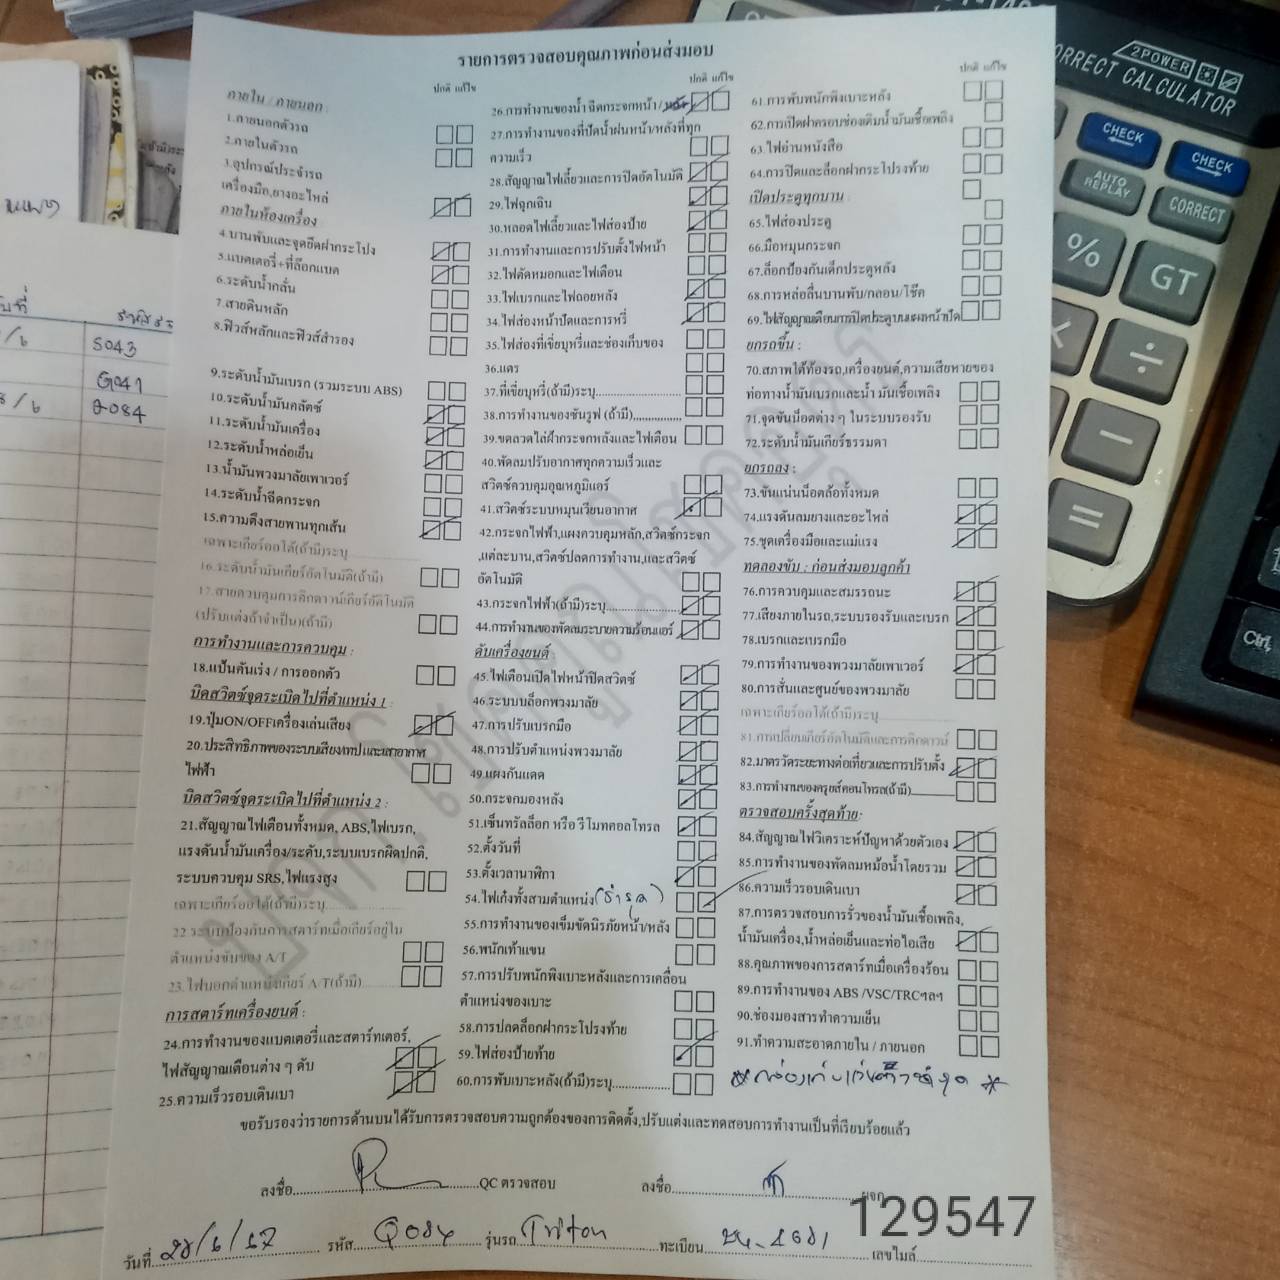 รายการตรวจสอบคุณภาพก่อนส่งมอบ
ปกติ แก้ไข
ภายใน / ภายนอก :
1.ภายนอกตัวรถ
2.ภายในตัวรถ
3.อุปกรณ์ประจำรถ
เครื่องมือ,ยางอะไหล่
ภายในห้องเครื่อง :
4.บานพับและจุดยึดฝากระโปง
5.แบตเตอรี่+ที่ล๊อกแบต
6.ระดับน้ำกลั่น
7.สายดินหลัก
8.ฟิวส์หลักและฟิวส์สำรอง
9.ระดับน้ำมันเบรก (รวมระบบ ABS)
10.ระดับน้ำมันคลัตซ์
11.ระดับน้ำมันเครื่อง
12.ระดับน้ำหล่อเย็น
13.น้ำมันพวงมาลัยเพาเวอร์
14.ระดับน้ำฉีดกระจก
15.ความตึงสายพานทุกเส้น
เฉพาะเกียร์ออโต้(ถ้ามี)ระบุ
16.ระดับน้ำมันเกียร์อัตโนมัติ(ถ้ามี)
17.สายควบคุมการคิกดาวน์เกียร์อัตโนมัติ
(ปรับแต่งถ้าจำเป็น)(ถ้ามี)
การทำงานและการควบคุม :
18.แป้นคันเร่ง / การออกตัว
บิดสวิตซ์จุดระเบิดไปที่ตำแหน่ง 1 :
19.ปุ่มON/OFFเครื่องเล่นเสียง
20.ประสิทธิภาพของระบบเสียงเทป และเสาอากาศ
ไฟฟ้า
บิดสวิตซ์จุดระเบิดไปที่ตำแหน่ง 2 :
21.สัญญาณไฟเตือนทั้งหมด, ABS,ไฟเบรก,
แรงดันน้ำมันเครื่อง/ระดับ,ระบบเบรกผิดปกติ,
ระบบควบคุม SRS,ไฟแรงสูง
เฉพาะเกียร์ออโต้(ถ้ามี)ระบุ
22.ระบบป้องกันการสตาร์ทเมื่อเกียร์อยู่ใน
ตำแหน่งขับของ A/T
23.ไฟบอกตำแหน่งเกียร์ A/T(ถ้ามี)
การสตาร์ทเครื่องยนต์ :
24.การทำงานของแบตเตอรี่และสตาร์ทเตอร์,
ไฟสัญญาณเตือนต่าง ๆ ดับ
25.ความเร็วรอบเดินเบา
ปกติ แก้ไข
26.การทำงานของน้ำ ฉีดกระจกหน้า / หลัง
27.การทำงานของที่ปัดน้ำฝนหน้า/หลังที่ทุก
ความเร็ว
28.สัญญาณไฟเลี้ยวและการปิดอัตโนมัติ
29.ไฟฉุกเฉิน
30.หลอดไฟเลี้ยวและไฟส่องป้าย
31.การทำงานและการปรับตั้งไฟหน้า
32.ไฟตัดหมอกและไฟเตือน
33.ไฟเบรกและไฟถอยหลัง
34.ไฟส่องหน้าปัดและการหรี่
35.ไฟส่องที่เขี่ยบุหรี่และช่องเก็บของ
36.แตร
37.ที่เขี่ยบุหรี่(ถ้ามี)ระบุ
38.การทำงานของซันรูฟ (ถ้ามี)
39.ขดลวดไล่ฝ้ากระจกหลังและไฟเตือน
40.พัดลมปรับอากาศทุกความเร็วและ
สวิตซ์ควบคุมอุณหภูมิแอร์
41.สวิตซ์ระบบหมุนเวียนอากาศ
42.กระจกไฟฟ้า,แผงควบคุมหลัก,สวิตซ์กระจก
,แต่ละบาน,สวิตซ์ปลดการทำงาน,และสวิตซ์
อัตโนมัติ
43.กระจกไฟฟ้า(ถ้ามี)ระบุ
44.การทำงานของพัดลมระบายความร้อนแอร์
ดับเครื่องยนต์
45.ไฟเตือนเปิดไฟหน้าปิดสวิตซ์
46.ระบบบล็อกพวงมาลัย
47.การปรับเบรกมือ
48.การปรับตำแหน่งพวงมาลัย
49.แผงกันแดด
50.กระจกมองหลัง
51.เซ็นทรัลล็อก หรือ รีโมทคอลโทรล
52.ตั้งวันที่
53.ตั้งเวลานาฬิกา
54.ไฟเก๋งทั้งสามตำแหน่ง (ชำรุด)
55.การทำงานของเข็มขัดนิรภัยหน้า/หลัง
56.พนักเท้าแขน
57.การปรับพนักพิงเบาะหลังและการเคลื่อน
ตำแหน่งของเบาะ
58.การปลดล็อกฝากระโปรงท้าย
59.ไฟส่องป้ายท้าย
60.การพับเบาะหลัง(ถ้ามี)ระบุ
ปกติ แก้ไข
61.การพับพนักพิงเบาะหลัง
62.การเปิดฝาครอบช่องเติมน้ำมันเชื้อเพลิง
63.ไฟอ่านหนังสือ
64.การปิดและล็อกฝากระโปรงท้าย
เปิดประตูทุกบาน :
65.ไฟส่องประตู
66.มือหมุนกระจก
67.ล็อกป้องกันเด็กประตูหลัง
68.การหล่อลื่นบานพับ/กลอน/โช๊ค
69.ไฟสัญญาณเตือนการปิดประตูบนแผงหน้าปัด
ยกรถขึ้น :
70.สภาพใต้ท้องรถ,เครื่องยนต์,ความเสียหายของ
ท่อทางน้ำมันเบรกและน้ำ มันเชื้อเพลิง
71.จุดขันน็อตต่าง ๆ ในระบบรองรับ
72.ระดับน้ำมันเกียร์ธรรมดา
ยกรถลง :
73.ขันแน่นน็อตล้อทั้งหมด
74.แรงดันลมยางและอะไหล่
75.ชุดเครื่องมือและแม่แรง
ทดลองขับ : ก่อนส่งมอบลูกค้า
76.การควบคุมและสมรรถนะ
77.เสียงภายในรถ,ระบบรองรับและเบรก
78.เบรกและเบรกมือ
79.การทำงานของพวงมาลัยเพาเวอร์
80.การสั่นและศูนย์ของพวงมาลัย
เฉพาะเกียร์ออโต้(ถ้ามี)ระบุ
81.การเปลี่ยนเกียร์อัตโนมัติและการคิกดาวน์
82.มาตรวัดระยะทางต่อเที่ยวและการปรับตั้ง
83.การทำงานของครุยส์คอนโทรล(ถ้ามี)
ตรวจสอบครั้งสุดท้าย:
84.สัญญาณไฟวิเคราะห์ปัญหาด้วยตัวเอง
85.การทำงานของพัดลมหม้อน้ำโดยรวม
86.ความเร็วรอบเดินเบา
87.การตรวจสอบการรั่วของน้ำมันเชื้อเพลิง,
น้ำมันเครื่อง,น้ำหล่อเย็นและท่อไอเสีย
88.คุณภาพของการสตาร์ทเมื่อเครื่องร้อน
89.การทำงานของ ABS /VSC/TRCฯลฯ
90.ช่องมองสารทำความเย็น
91.ทำความสะอาดภายใน / ภายนอก
ขอรับรองว่ารายการด้านบนได้รับการตรวจสอบความถูกต้องของการติดตั้ง,ปรับแต่งและทดสอบการทำงานเป็นที่เรียบร้อยแล้ว
ลงชื่อ QC ตรวจสอบ ลงชื่อ ผจก
129547
วันที่ 28/6/67 รหัส Q084 รุ่นรถ Triton ทะเบียน เลขไมล์
2POWER
CORRECT CALCULATOR
CHECK
CHECK
AUTO REPLAY
CORRECT
%
GT
×
÷
−
+
=
Ctrl
S043